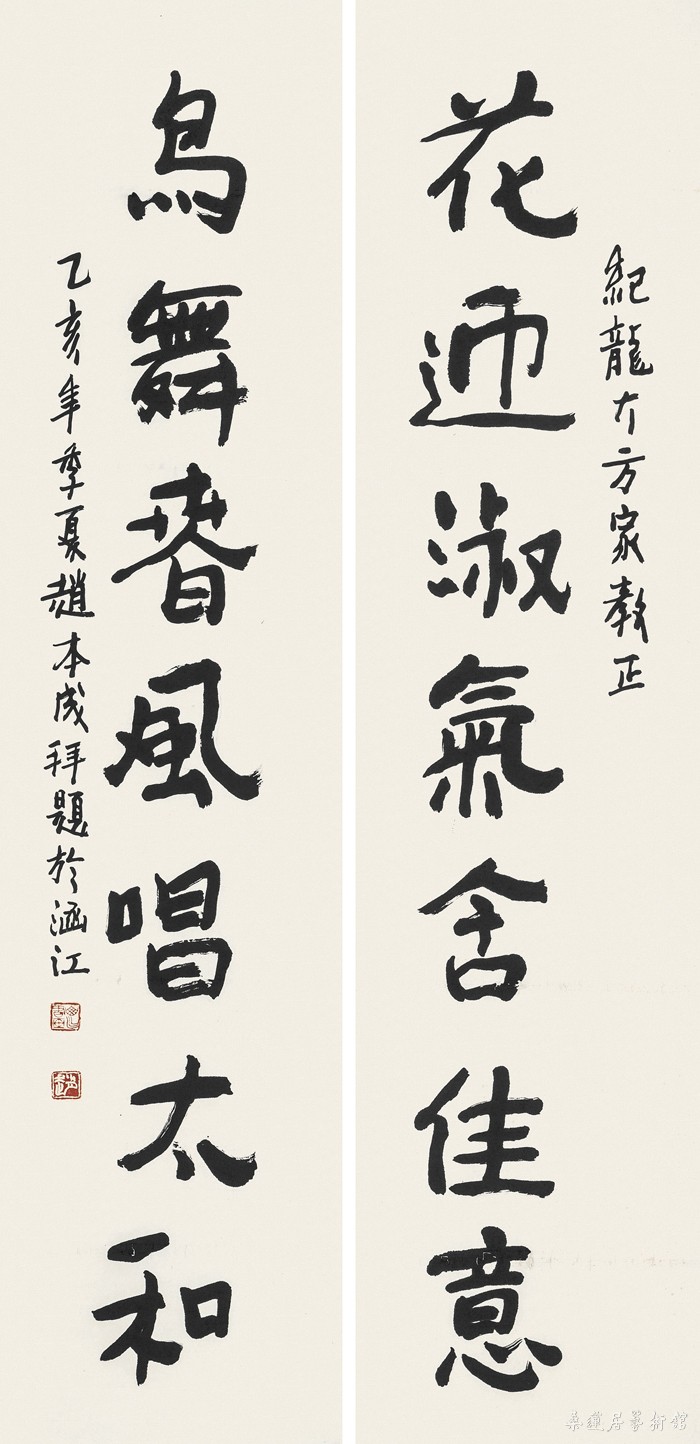 紀龍大方家教正
花迎淑氣含佳意
鳥舞春風唱太和
乙亥年季夏趙本成拜題於涵江
桑蓮居藝術館